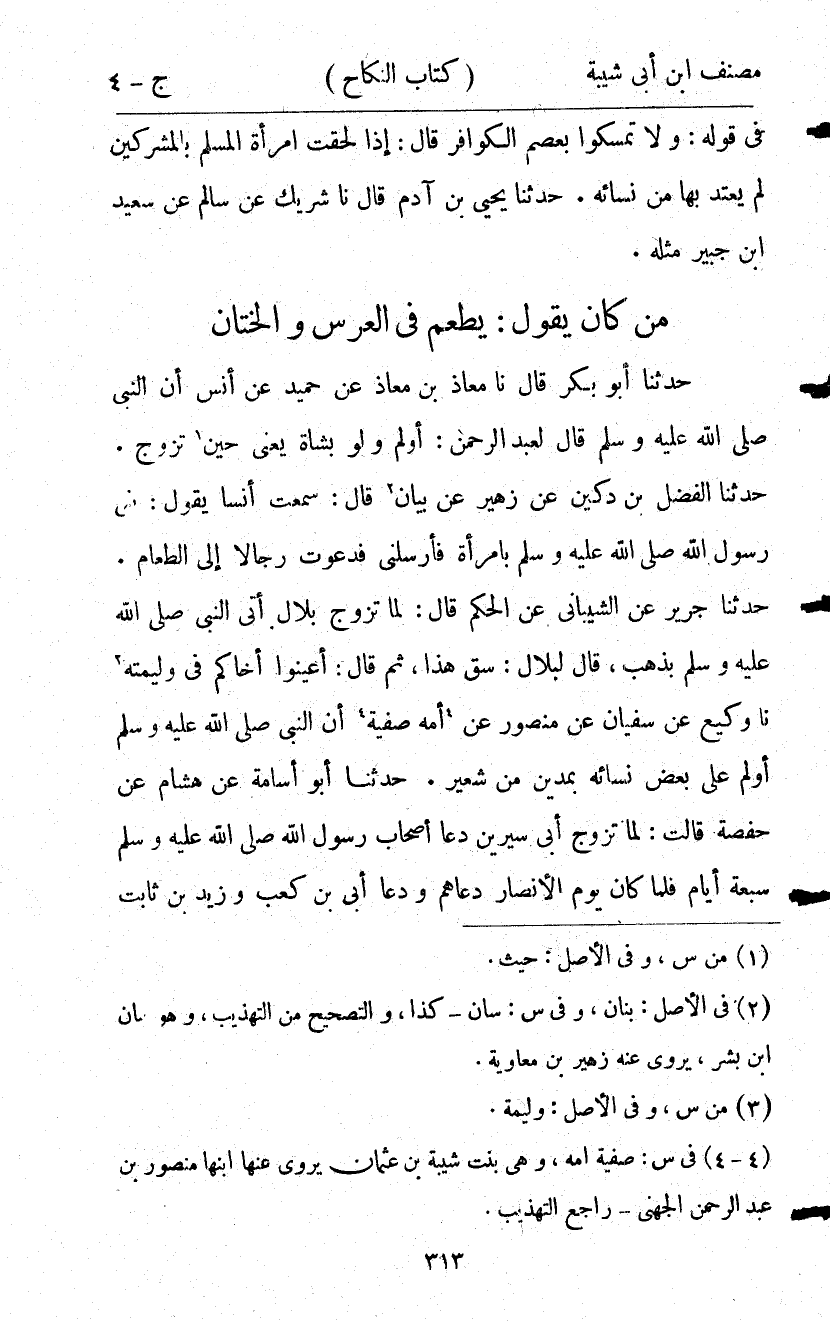 مصنف ابن أبى شيبة ( كتاب النكاح ) ج - ٤
فى قوله : و لا تمسكوا بعصم الكوافر قال : إذا لحقت امرأة المسلم بالمشركين
لم يعتد بها من نسائه . حدثنا يحيى بن آدم قال نا شريك عن سالم عن سعيد
ابن جبير مثله .
من كان يقول : يطعم فى العرس و الختان
حدثنا أبو بكر قال نا معاذ بن معاذ عن حميد عن أنس أن النبى
صلى الله عليه و سلم قال لعبد الرحمن : أولم و لو بشاة يعنى حين١ تزوج .
حدثنا الفضل بن دكين عن زهير عن بيان٢ قال : سمعت أنسا يقول :
رسول الله صلى الله عليه و سلم بامرأة فأرسلنى فدعوت رجالا إلى الطعام .
حدثنا جرير عن الشيبانى عن الحكم قال : لما تزوج بلال أتى النبى صلى الله
عليه و سلم بذهب ، قال لبلال : سق هذا ، ثم قال : أعينوا أخاكم فى وليمته٣
نا وكيع عن سفيان عن منصور عن ٤أمه صفية٤ أن النبى صلى الله عليه و سلم
أولم على بعض نسائه بمدين من شعير . حدثنا أبو أسامة عن هشام عن
حفصة قالت : لما تزوج أبى سيرين دعا أصحاب رسول الله صلى الله عليه و سلم
سبعة أيام فلما كان يوم الأنصار دعاهم و دعا أبى بن كعب و زيد بن ثابت
(١) من س ، و فى الأصل : حيث .
(٢) فى الأصل : بنان ، و فى س : سان - كذا ، و التصحيح من التهذيب ، و هو
ابن بشر ، يروى عنه زهير بن معاوية .
(٣) من س ، و فى الأصل : وليمة .
(٤ - ٤) فى س : صفية امه ، و هى بنت شيبة بن عثمان يروى عنها ابنها منصور بن
عبد الرحمن الجهنى - راجع التهذيب .
٣١٣